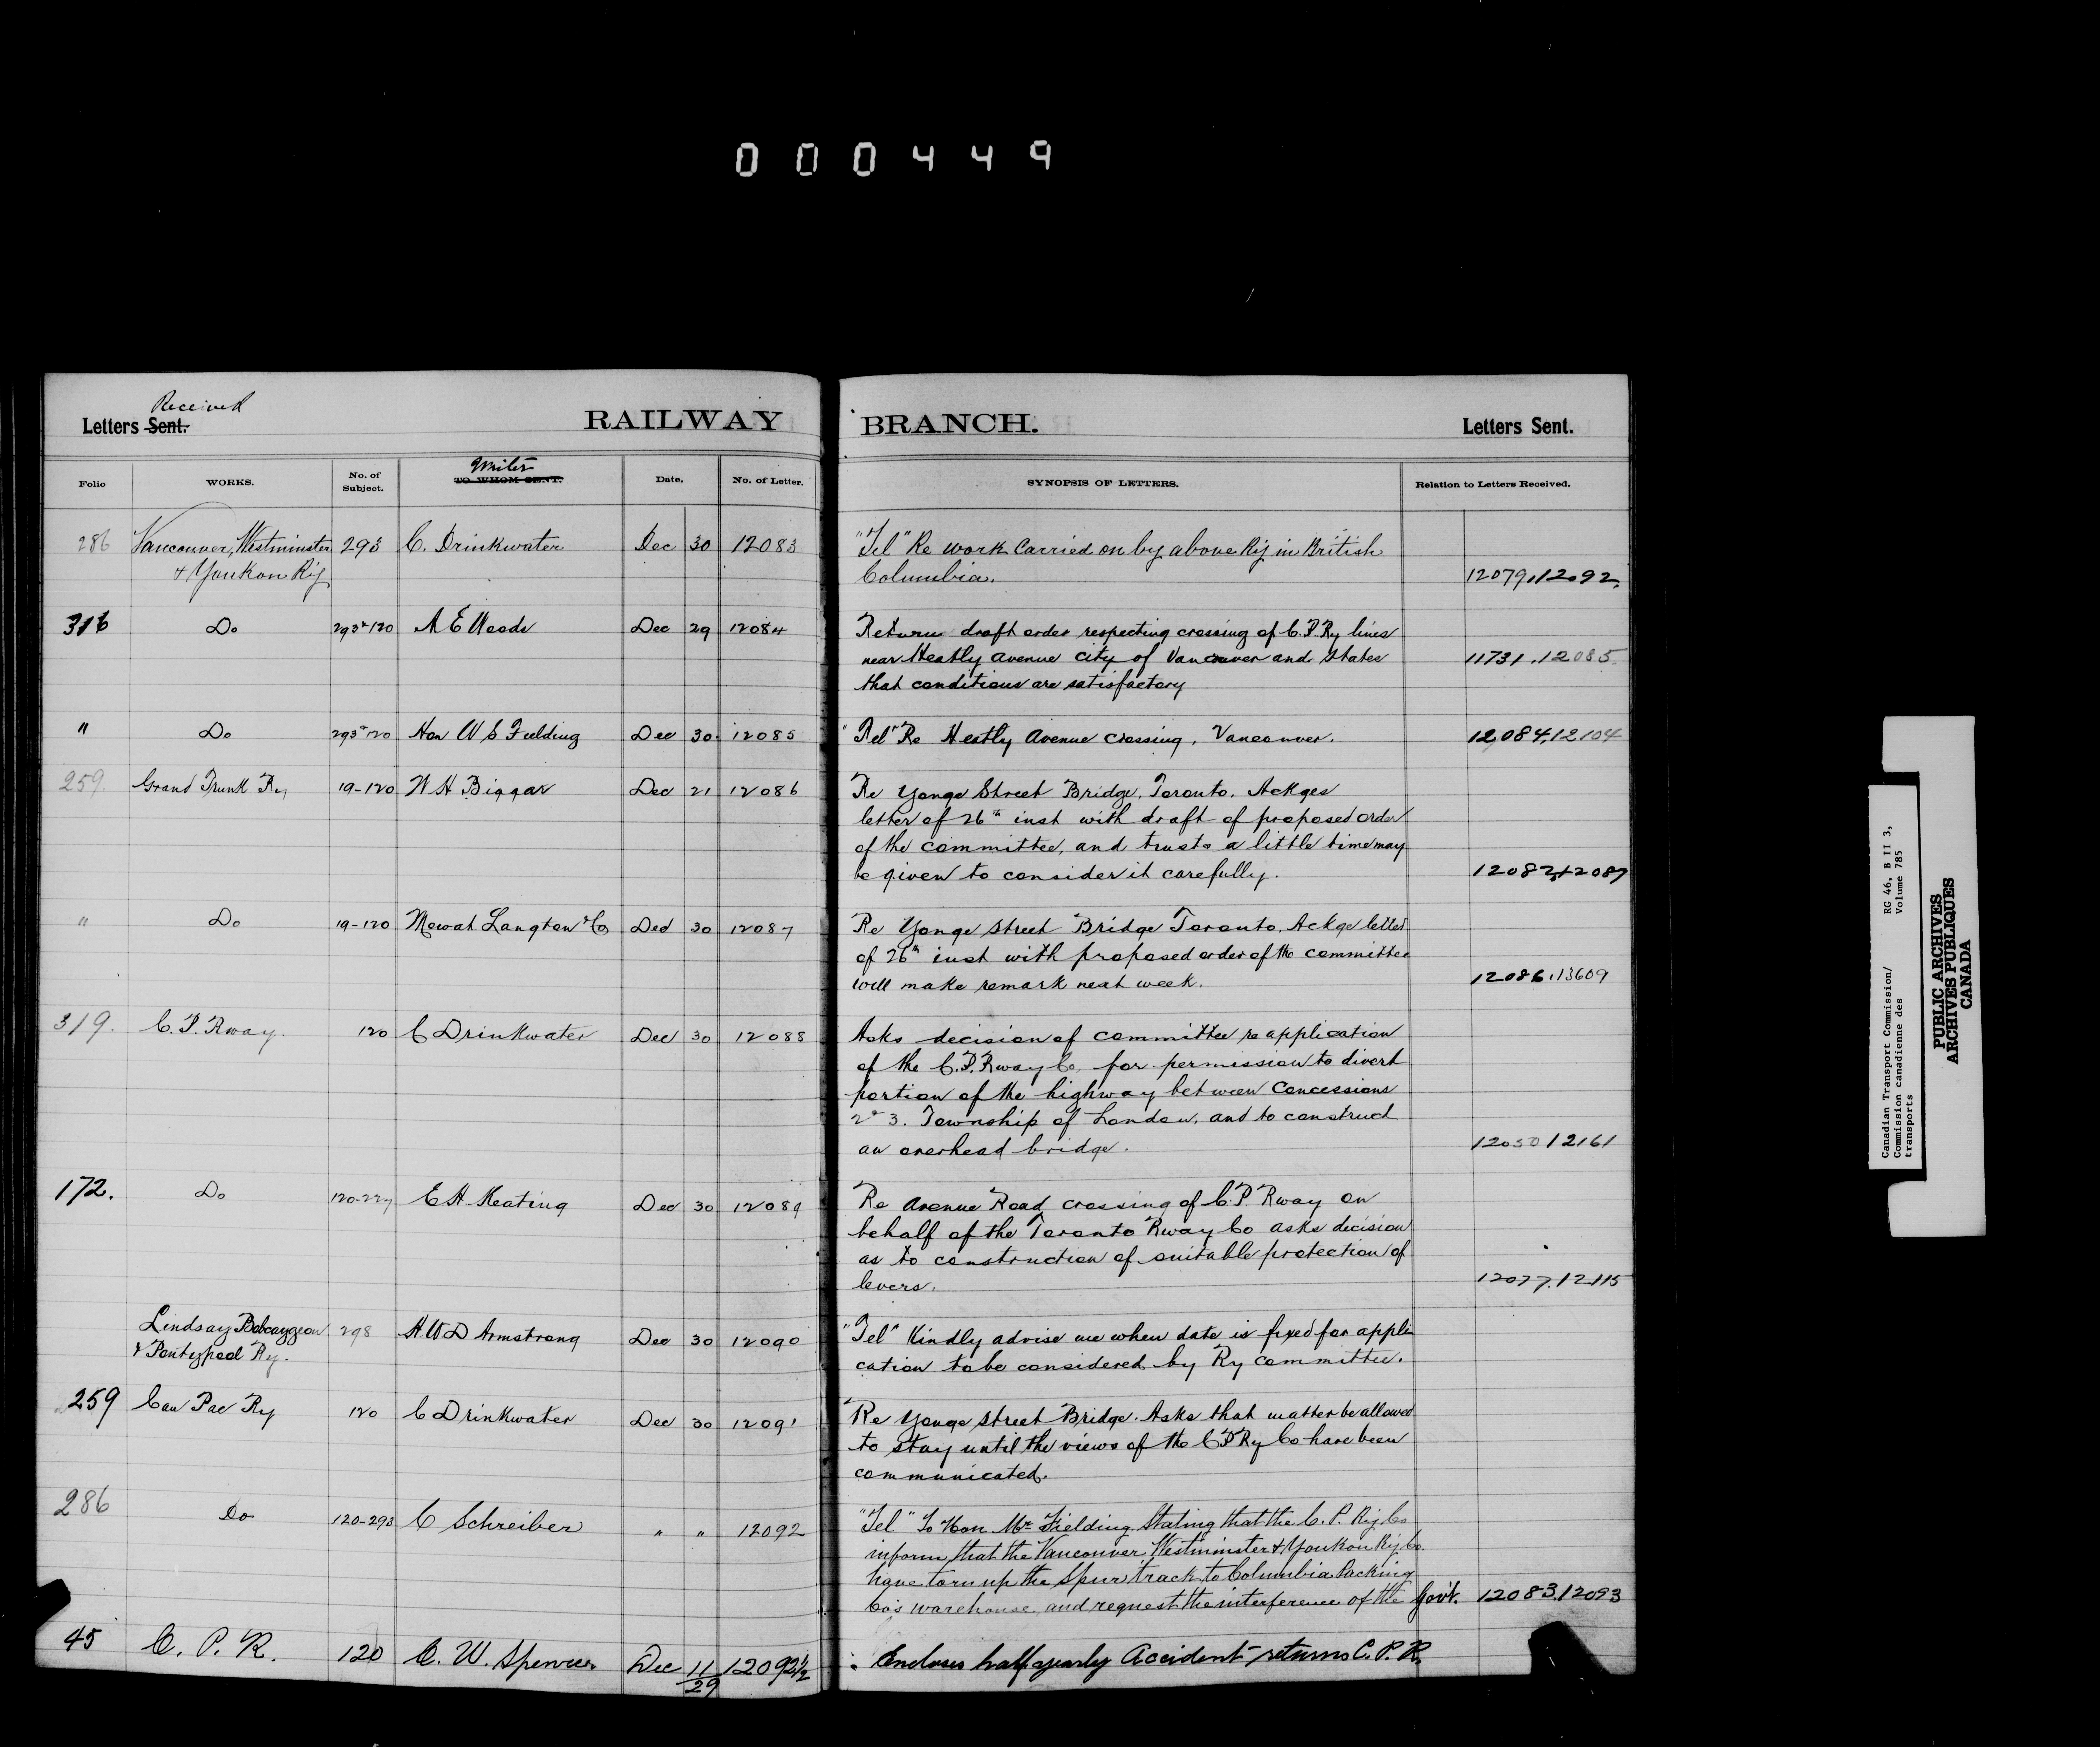 000449
Received
Letters Sent.
RAILWAY BRANCH.
Letters Sent.
Folio WORKS. No. of Subject. Writer TO WHOM SENT. Date. No. of Letter. SYNOPSIS OF LETTERS. Relation to Letters Received.
286 Vancouver, Westminster 293 C. Drinkwater Dec 30 12083 "Tel" Re work carried on by above Ry in British
& Youkon Ry Columbia. 12079,12092.
316 Do 293&120 A E Woods Dec 29 12084 Return draft order respecting crossing of C.P.Ry lines
near Heatly avenue city of Vancouver and states 11731.12085
that conditions are satisfactory
" Do 293&120 Hon W S Fielding Dec 30 12085 "Tel" Re Heatly Avenue crossing, Vancouver. 12,084,12104
259 Grand Trunk Ry 19-120 W H Biggar Dec 21 12086 Re Yonge Street Bridge, Toronto. Ackges
letter of 26th inst with draft of proposed order
of the committee, and trusts a little time may
be given to consider it carefully. 12082,12087
" Do 19-120 Mowat Langton & Co Dec 30 12087 Re Yonge street Bridge Toronto. Ackge letter
of 26th inst with proposed order of the committee
will make remark next week. 12086.13609
319. C. P. Rway. 120 C Drinkwater Dec 30 12088 Asks decision of committee re application
of the C.P. Rway Co, for permission to divert
portion of the highway between Concessions
2 & 3. Township of London, and to construct
an overhead bridge. 12050 12161
172. Do 120-227 E H Keating Dec 30 12089 Re Avenue Road crossing of C.P. Rway on
behalf of the Toronto Rway Co asks decision
as to construction of suitable protection of
levers. 12077.12115
Lindsay Bobcaygeon 298 H W D Armstrong Dec 30 12090 "Tel" Kindly advise me when date is fixed for appli
& Pontypool Ry. cation to be considered by Ry committee.
259 Can Pac Ry 120 C Drinkwater Dec 30 12091 Re Yonge street Bridge. Asks that matter be allowed
to stay until the views of the C P Ry Co have been
communicated.
286 Do 120-293 C Schreiber " " 12092 "Tel" To Hon. Mr Fielding Stating that the C. P. Ry Co
inform that the Vancouver Westminster & Youkon Ry Co.
have torn up the Spur track to Columbia Packing
Co's warehouse, and request the interference of the Govt. 12083.12093
45 C. P. R. 120 C. W. Spencer Dec 11/29 12092½ Encloses half yearly Accident returns C. P. R.
Canadian Transport Commission/ RG 46, B II 3,
Commission canadienne des Volume 785
transports
PUBLIC ARCHIVES
ARCHIVES PUBLIQUES
CANADA